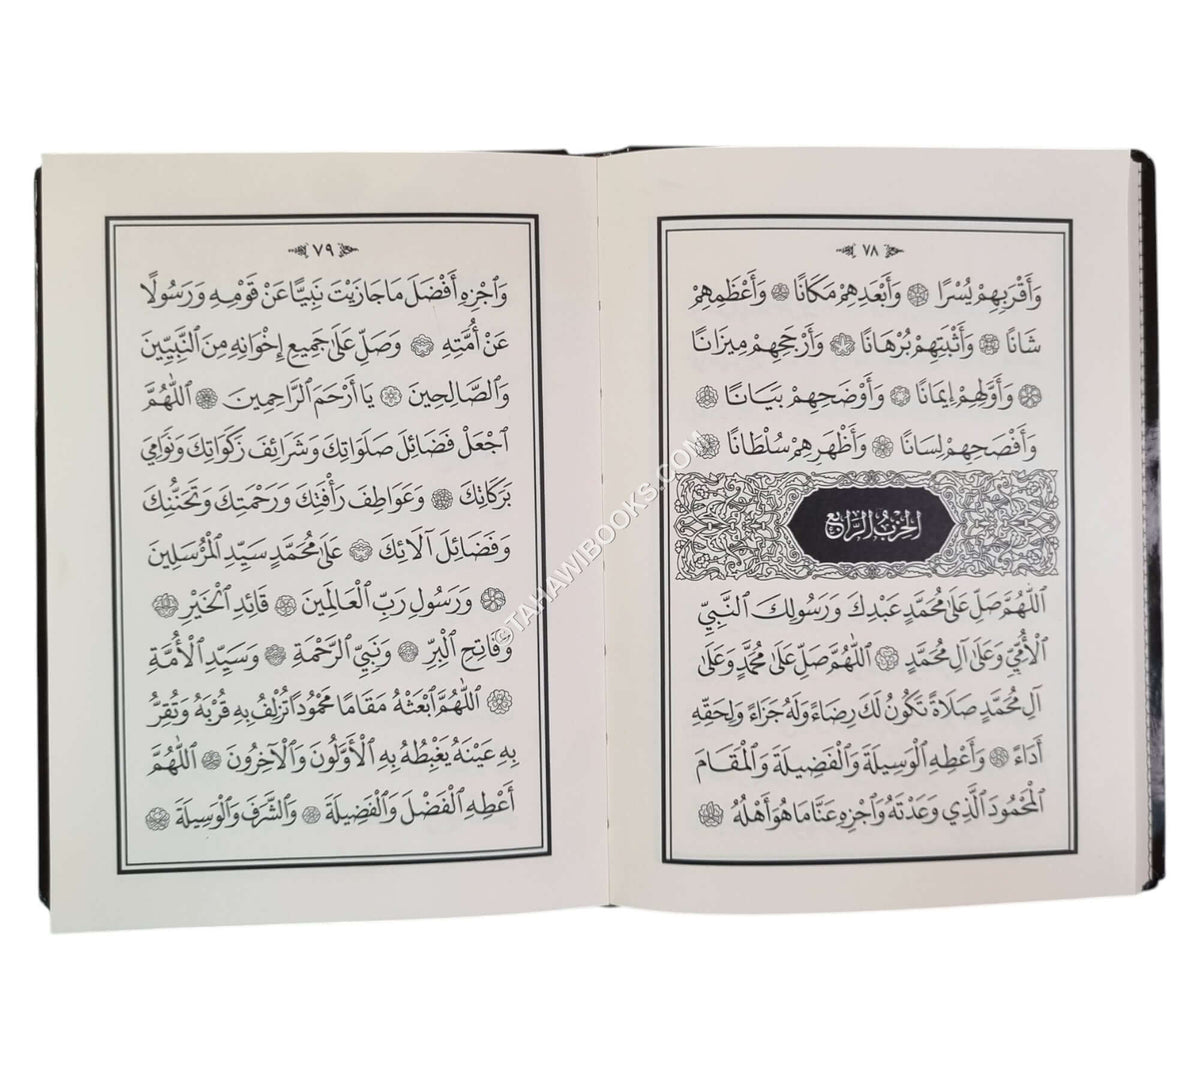 ٧٨
وَأَقْرَبِهِمْ يُسْرًا وَأَبْعَدِهِمْ مَكَانًا وَأَعْظَمِهِمْ
شَانًا وَأَثْبَتِهِمْ بُرْهَانًا وَأَرْجَحِهِمْ مِيزَانًا
وَأَوَّلِهِمْ إِيمَانًا وَأَوْضَحِهِمْ بَيَانًا
وَأَفْصَحِهِمْ لِسَانًا وَأَظْهَرِهِمْ سُلْطَانًا
الْحِزْبُ الرَّابِعُ
اَللّٰهُمَّ صَلِّ عَلَىٰ مُحَمَّدٍ عَبْدِكَ وَرَسُولِكَ النَّبِيِّ
الْأُمِّيِّ وَعَلَىٰ آلِ مُحَمَّدٍ اَللّٰهُمَّ صَلِّ عَلَىٰ مُحَمَّدٍ وَعَلَىٰ
آلِ مُحَمَّدٍ صَلَاةً تَكُونُ لَكَ رِضَاءً وَلَهُ جَزَاءً وَلِحَقِّهِ
أَدَاءً وَأَعْطِهِ الْوَسِيلَةَ وَالْفَضِيلَةَ وَالْمَقَامَ
الْمَحْمُودَ الَّذِي وَعَدْتَهُ وَاجْزِهِ عَنَّا مَا هُوَ أَهْلُهُ
٧٩
وَاجْزِهِ أَفْضَلَ مَا جَازَيْتَ نَبِيًّا عَنْ قَوْمِهِ وَرَسُولًا
عَنْ أُمَّتِهِ وَصَلِّ عَلَىٰ جَمِيعِ إِخْوَانِهِ مِنَ النَّبِيِّينَ
وَالصَّالِحِينَ يَا أَرْحَمَ الرَّاحِمِينَ اَللّٰهُمَّ
اجْعَلْ فَضَائِلَ صَلَوَاتِكَ وَشَرَائِفَ زَكَوَاتِكَ وَنَوَامِيَ
بَرَكَاتِكَ وَعَوَاطِفَ رَأْفَتِكَ وَرَحْمَتِكَ وَتَحَنُّنِكَ
وَفَضَائِلَ آلَائِكَ عَلَىٰ مُحَمَّدٍ سَيِّدِ الْمُرْسَلِينَ
وَرَسُولِ رَبِّ الْعَالَمِينَ قَائِدِ الْخَيْرِ
وَفَاتِحِ الْبِرِّ وَنَبِيِّ الرَّحْمَةِ وَسَيِّدِ الْأُمَّةِ
اَللّٰهُمَّ ابْعَثْهُ مَقَامًا مَحْمُودًا تُزْلِفُ بِهِ قُرْبَهُ وَتُقِرُّ
بِهِ عَيْنَهُ يَغْبِطُهُ بِهِ الْأَوَّلُونَ وَالْآخِرُونَ اَللّٰهُمَّ
أَعْطِهِ الْفَضْلَ وَالْفَضِيلَةَ وَالشَّرَفَ وَالْوَسِيلَةَ
©TAHAWIBOOKS.COM